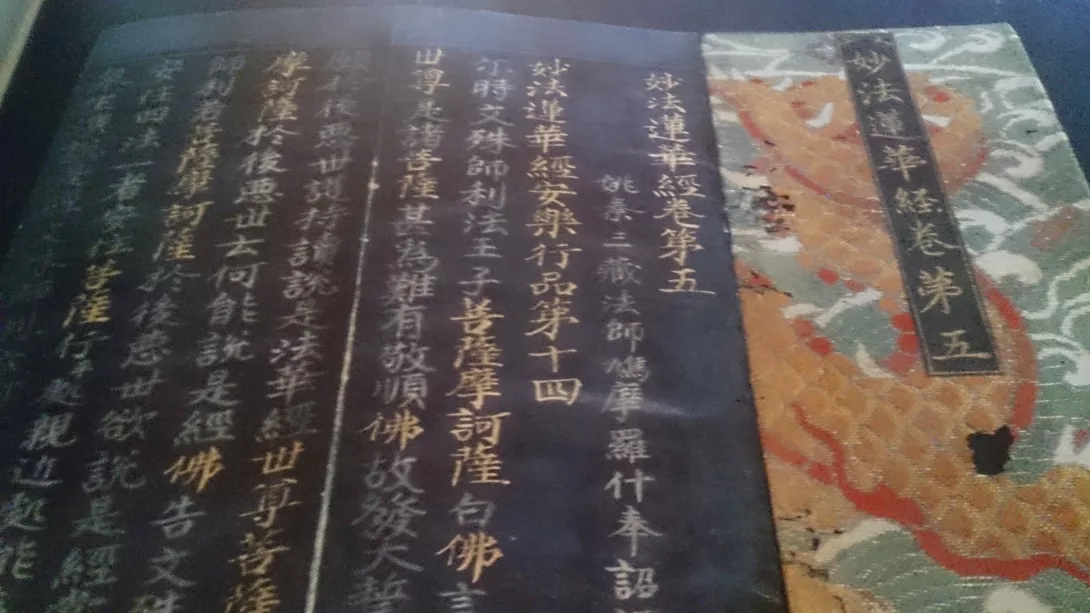 妙法蓮華經卷第五
妙法蓮華經卷第五
姚秦三藏法師鳩摩羅什奉詔
妙法蓮華經安樂行品第十四
尒時文殊師利法王子菩薩摩訶薩白佛言
世尊是諸菩薩甚為難有敬順佛故發大誓
願於後惡世護持讀說是法華經世尊菩薩
摩訶薩於後惡世云何能說是經佛告文殊
師利若菩薩摩訶薩於後惡世欲說是經
安住四法一者安住菩薩行處親近處能